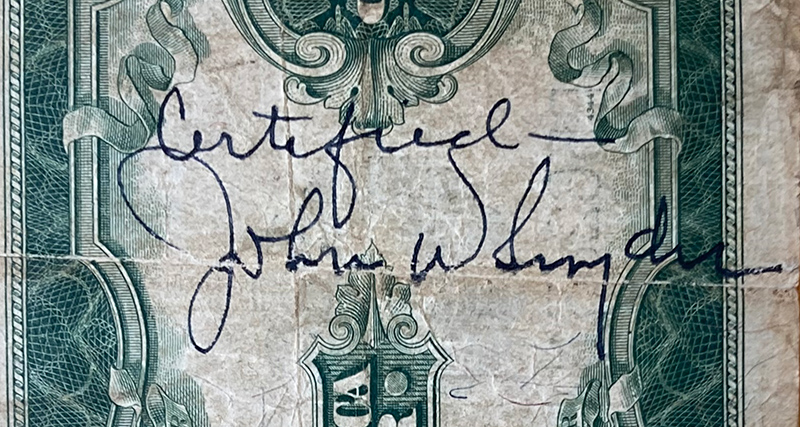 Certified —
John W Snyder